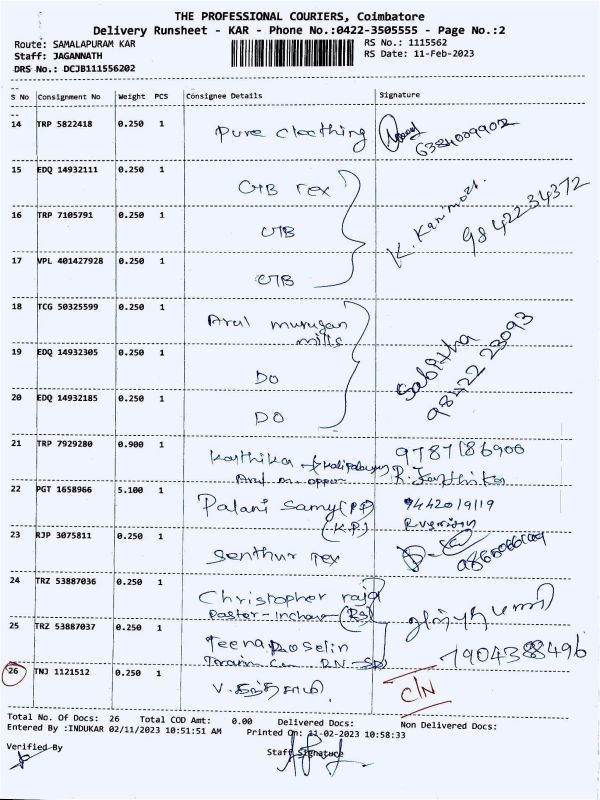 THE PROFESSIONAL COURIERS, Coimbatore
Delivery Runsheet - KAR - Phone No.:0422-3505555 - Page No.:2
Route: SAMALAPURAM KAR
RS No.: 1115562
Staff: JAGANNATH
RS Date: 11-Feb-2023
DRS No.: DCJB111556202
S No Consignment No Weight PCS Consignee Details Signature
14 TRP 5822418 0.250 1 Pure cleathing
15 EDQ 14932111 0.250 1 CTB Tex
16 TRP 7105791 0.250 1 CTB 98422 34372
17 VPL 401427928 0.250 1 CTB
18 TCG 50325599 0.250 1 Arul murugan
mills
19 EDQ 14932305 0.250 1 DO Sabitha
98422 23093
20 EDQ 14932185 0.250 1 DO
21 TRP 7929280 0.900 1 Karthika 9787186900
22 PGT 1658966 5.100 1 Palani Samy (PP)
(K.P.)
23 RJP 3075811 0.250 1 Senthur Tex
24 TRZ 53887036 0.250 1 Christopher raja
25 TRZ 53887037 0.250 1 7904388496
26 TNJ 1121512 0.250 1 C/N
Total No. Of Docs: 26 Total COD Amt: 0.00 Delivered Docs: Non Delivered Docs:
Entered By :INDUKAR 02/11/2023 10:51:51 AM Printed On: 11-02-2023 10:58:33
Verified By Staff Signature